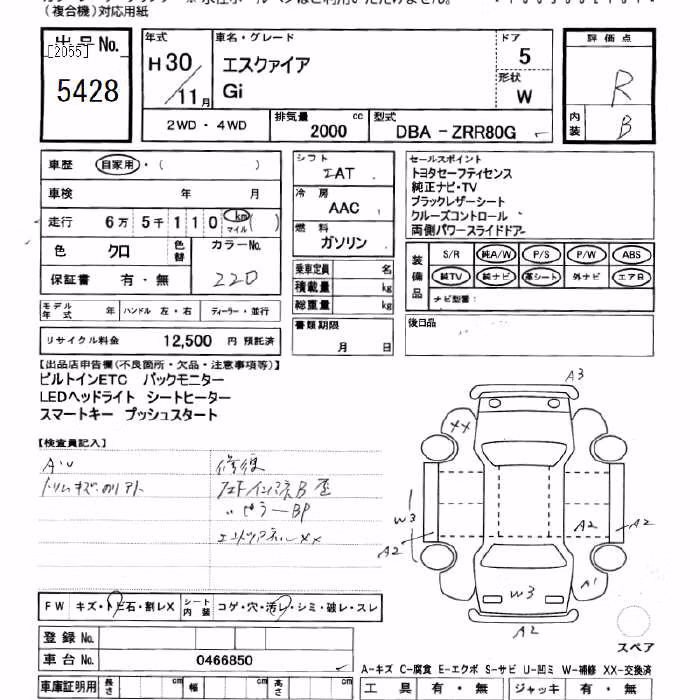 (複合機)対応用紙
出品No.
[2055]
5428
年式
H30/11月
車名・グレード
エスクァイア
Gi
ドア
5
形状
W
評価点
R
内装
B
2WD・4WD
排気量
2000 cc
型式
DBA-ZRR80G
車歴 自家用・( )
車検 年 月
走行 6万 5千 1 1 0 km マイル ( )
色 クロ 色替 カラーNo.
220
保証書 有・無
シフト
IAT
冷房
AAC
燃料
ガソリン
乗車定員 名
積載量 kg
総重量 kg
セールスポイント
トヨタセーフティセンス
純正ナビ・TV
ブラックレザーシート
クルーズコントロール
両側パワースライドドア
装備品
S/R 純A/W P/S P/W ABS
純TV 純ナビ 革シート 外ナビ エアB
ナビ型番:
モデル年式 年 ハンドル 左・右 ディーラー・並行
書類期限
月 日
後日品
リサイクル料金 12,500 円 預託済
【出品店申告欄(不良箇所・欠品・注意事項等)】
ビルトインETC バックモニター
LEDヘッドライト シートヒーター
スマートキー プッシュスタート
【検査員記入】
修復
A3
XX
W3
A2
A2
A2
A1
W3
A2
スペア
FW キズ・トビ石・割レX シート内装 コゲ・穴・汚レ・シミ・破レ・スレ
登録No.
車台No. 0466850
A-キズ C-腐食 E-エクボ S-サビ U-凹ミ W-補修 XX-交換済
車庫証明用 長さ cm 幅 cm 高さ cm
工具 有・無 ジャッキ 有・無